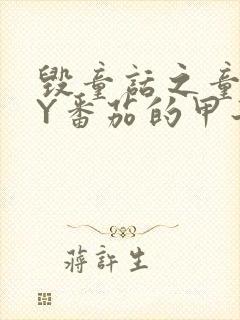 毁童话之童
Y番茄的甲
蒋许生